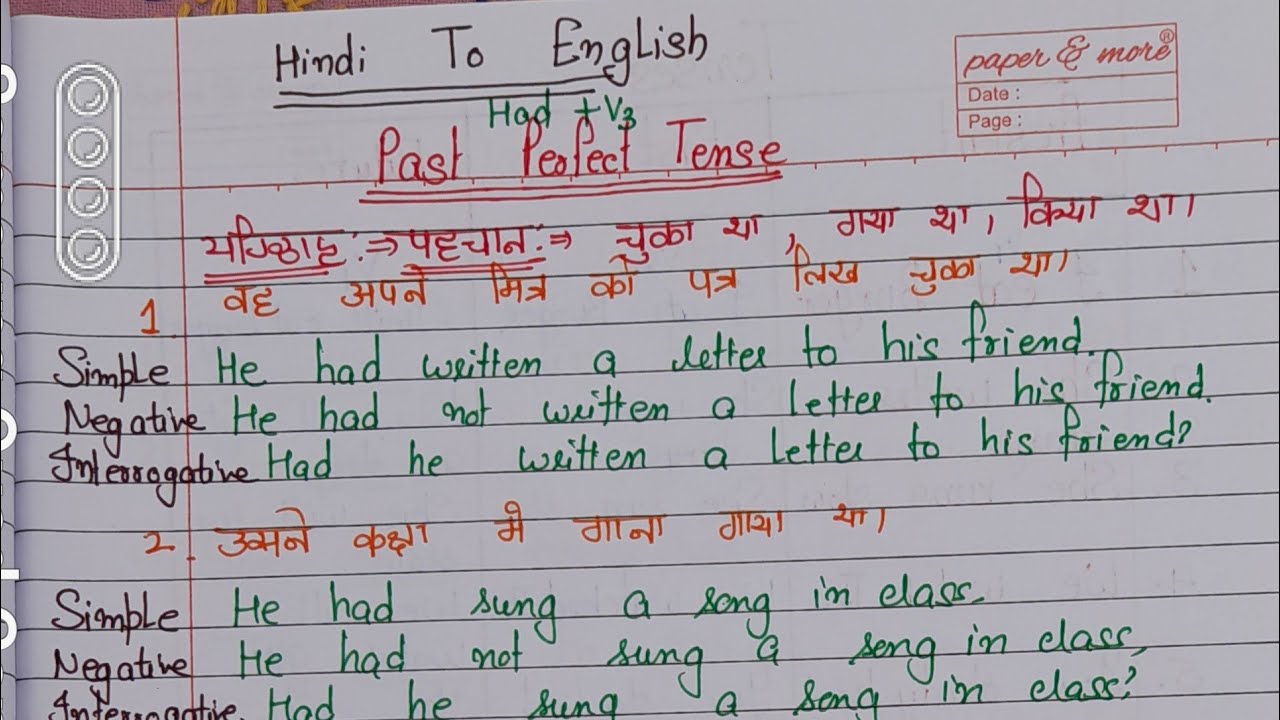 Hindi To English
paper & more®
Date :
Page :
Had + V3
Past Perfect Tense
पहचान :⇒ चुका था, गया था, किया था।
1 वह अपने मित्र को पत्र लिख चुका था।
Simple He had written a letter to his friend.
Negative He had not written a letter to his friend.
Interrogative Had he written a letter to his friend?
2. उसने कक्षा मे गाना गाया था।
Simple He had sung a song in class.
Negative He had not sung a song in class,
Interrogative Had he sung a song in class?